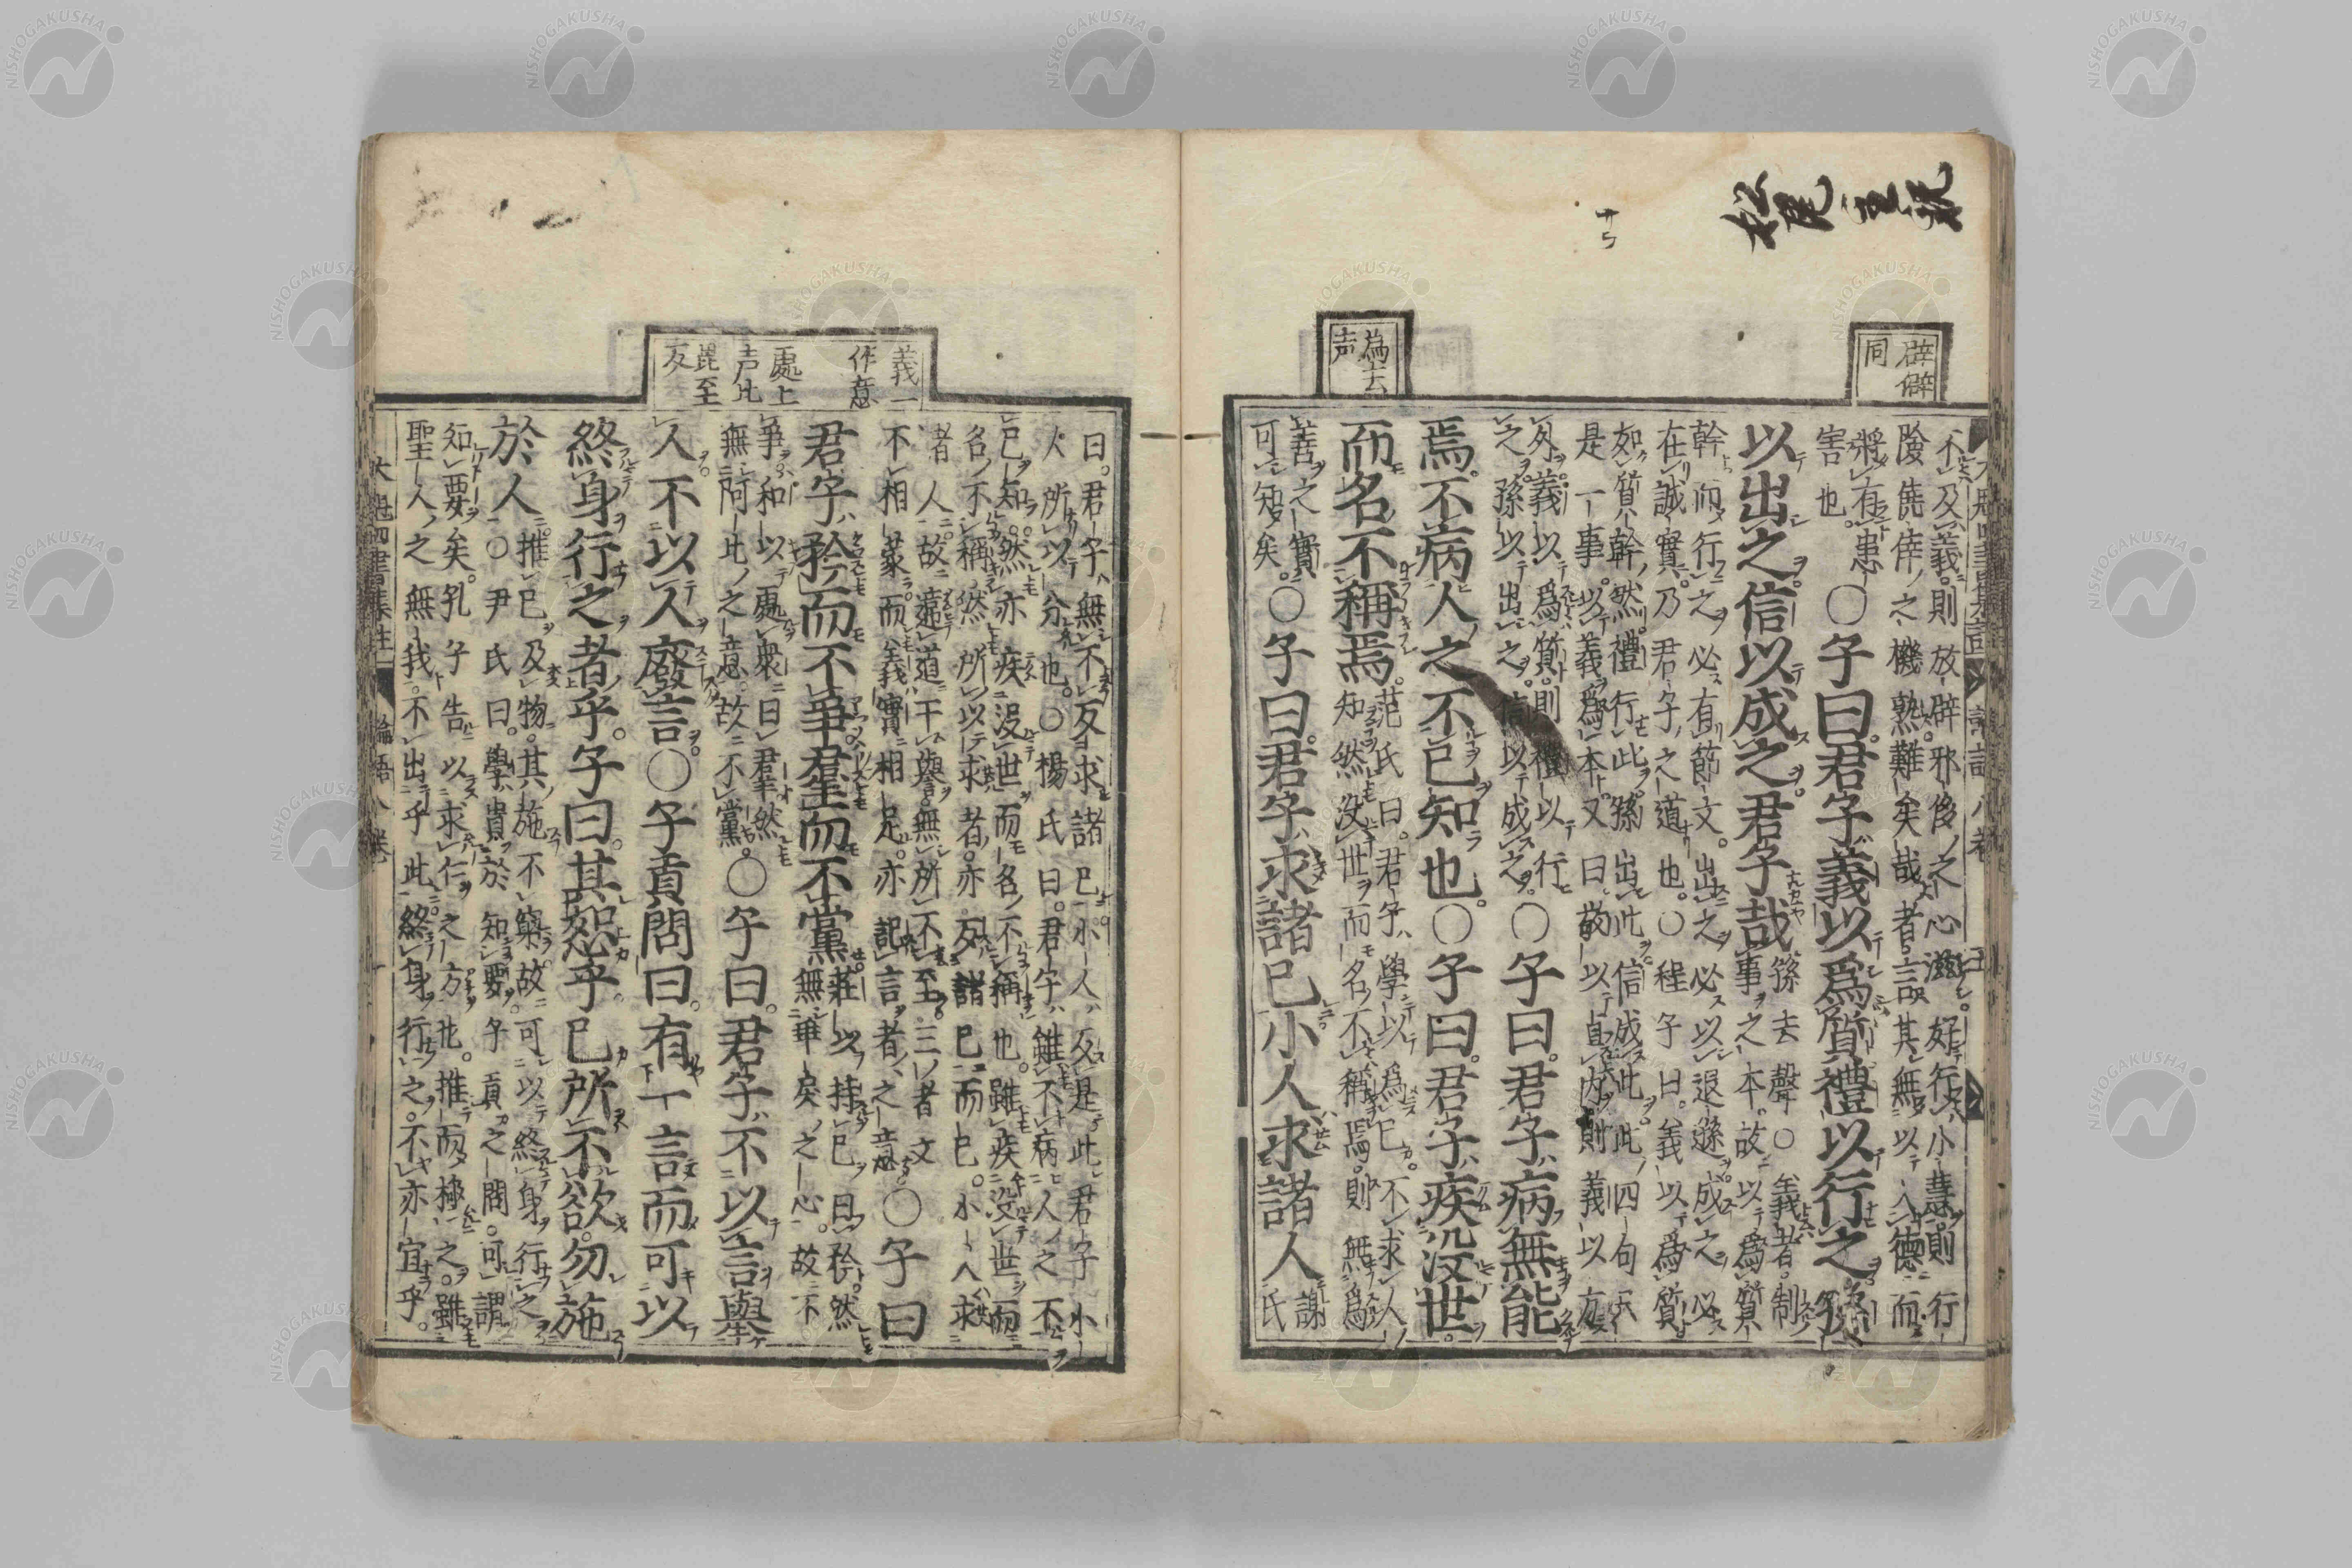 辟僻
同
為去
声
不及義則放辟邪侈之心滋好行小慧則行
險僥倖之機熟難矣哉者言其無以入德而
將有患
害也。○子曰。君子義以爲質禮以行之。孫
以出之。信以成之。君子哉
孫去聲○義者制
事之本。故以爲質
幹而行之必有節文。出之必以退遜成之必
在誠實。乃君子之道也。○程子曰。義以爲質
如質幹然禮行此孫出此信成此此四句只
是一事。以義爲本。又曰敬以直内則義以方
外。義以爲質。則禮以行
之。孫以出之。信以成之。○子曰。君子病無能
焉。不病人之不已知也。○子曰。君子疾没世。
而名不稱焉。
范氏曰。君子學以爲已。不求人
知然没世而名不稱焉。則無爲
善之實
可知矣。○子曰。君子求諸已小人求諸人
謝
氏
義一
作意
處上
声比
毘至
反
曰。君子無不反求諸已小人反是此君子小
人所以分也。○楊氏曰。君子雖不病人之不
已知。然亦疾没世而名不稱也。雖疾没世而
名不稱然所以求者。亦反諸已而已。小人求
者人。故違道干譽無所不至三者文
不相蒙。而義實相足。亦記言者之意。○子曰
君子矜而不爭羣而不黨
莊以持已曰矜。然
無乖戾之心。故不
爭。和以處衆曰羣然
無阿比之意。故不黨。○子曰。君子不以言舉
人不以人廢言。○子貢問曰。有一言而可以
終身行之者乎。子曰。其恕乎。已所不欲。勿施
於人
推已及物。其施不窮。故可以終身行之
○尹氏曰。學貴於知要。子貢之問。可謂
知要矣。孔子告以求仁之方也。推而極之。雖
聖人之無我。不出乎此。終身行之。不亦宜乎。